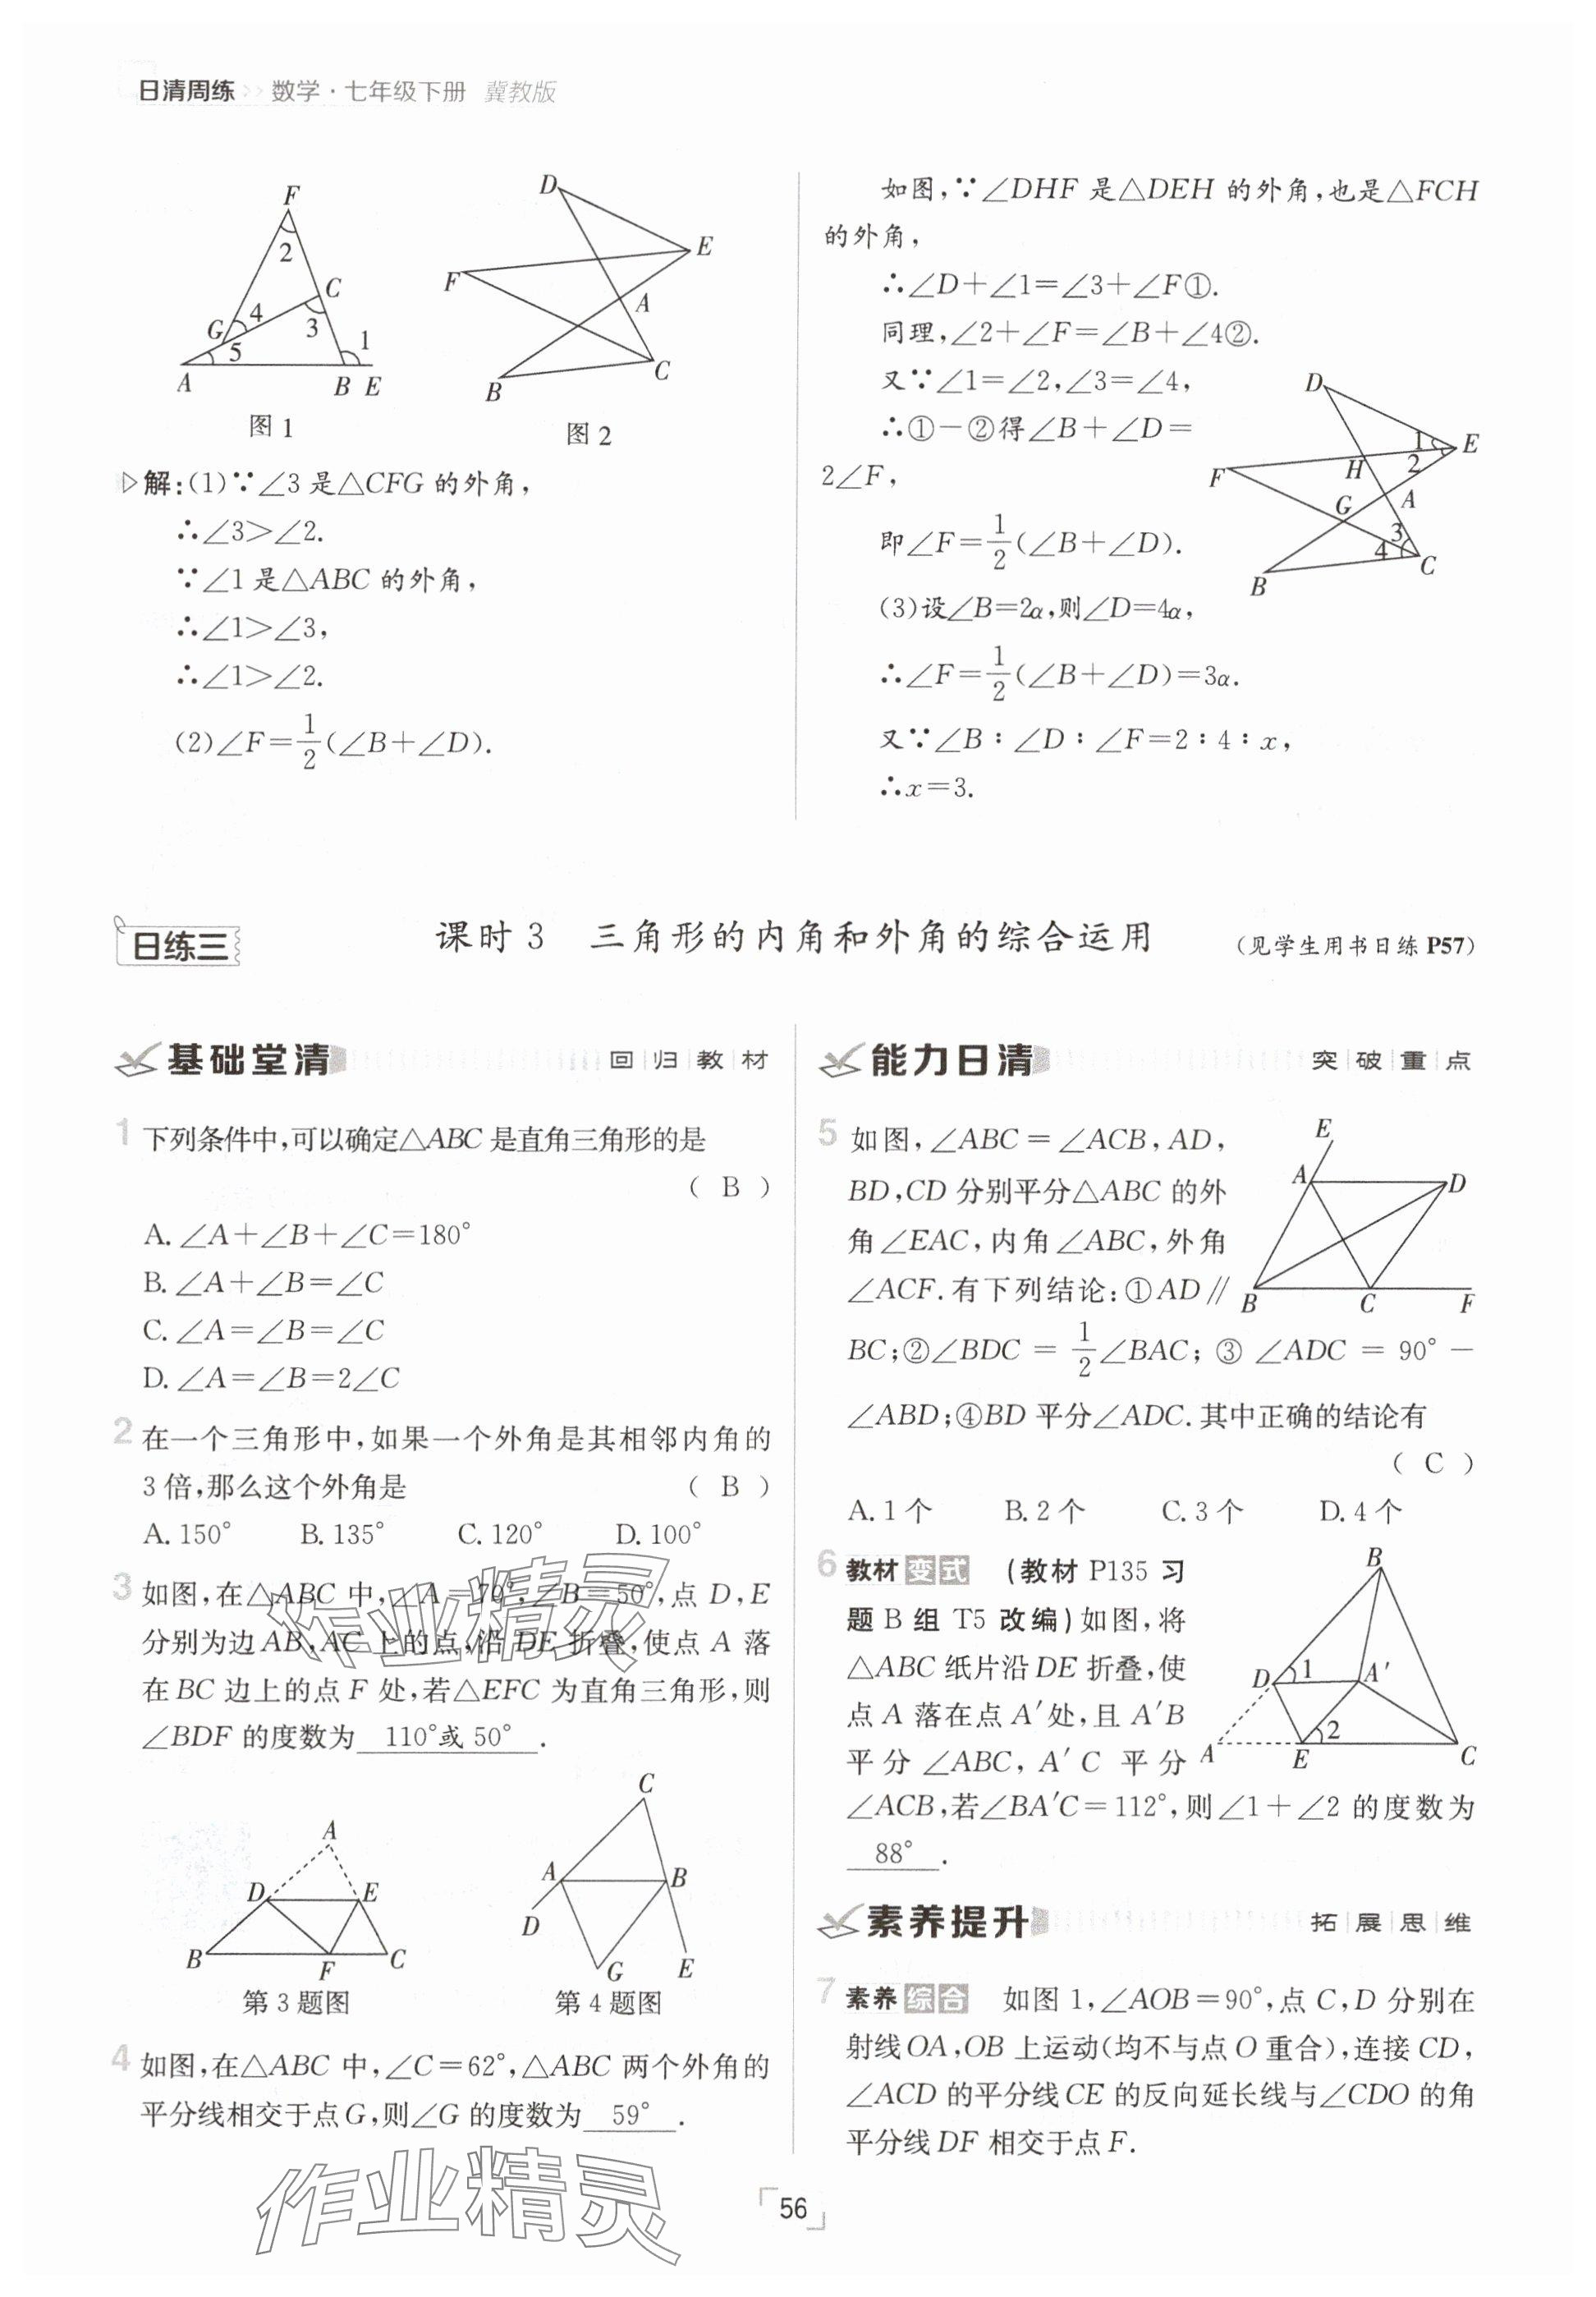 日清周练 >> 数学·七年级下册 冀教版
F
2
C
G 4
3
1
5
A B E
图 1
D
E
F
A
C
B
图 2
▷解:(1)∵∠3 是△CFG 的外角,
∴∠3>∠2.
∵∠1 是△ABC 的外角,
∴∠1>∠3,
∴∠1>∠2.
(2)∠F=1/2(∠B+∠D).
如图,∵∠DHF 是△DEH 的外角,也是△FCH
的外角,
∴∠D+∠1=∠3+∠F①.
同理,∠2+∠F=∠B+∠4②.
又∵∠1=∠2,∠3=∠4,
∴①-②得∠B+∠D=
2∠F,
即∠F=1/2(∠B+∠D).
D
1 E
H 2
F
G A
3
4 C
B
(3)设∠B=2α,则∠D=4α,
∴∠F=1/2(∠B+∠D)=3α.
又∵∠B∶∠D∶∠F=2∶4∶x,
∴x=3.
日练三
课时 3 三角形的内角和外角的综合运用 (见学生用书日练 P57)
基础堂清 回归教材
1 下列条件中,可以确定△ABC 是直角三角形的是
( B )
A. ∠A+∠B+∠C=180°
B. ∠A+∠B=∠C
C. ∠A=∠B=∠C
D. ∠A=∠B=2∠C
2 在一个三角形中,如果一个外角是其相邻内角的
3 倍,那么这个外角是 ( B )
A. 150° B. 135° C. 120° D. 100°
3 如图,在△ABC 中,∠A=70°,∠B=50°,点 D,E
分别为边 AB,AC 上的点,沿 DE 折叠,使点 A 落
在 BC 边上的点 F 处,若△EFC 为直角三角形,则
∠BDF 的度数为 110°或 50° .
A
D E
B F C
第 3 题图
C
A B
D
G E
第 4 题图
4 如图,在△ABC 中,∠C=62°,△ABC 两个外角的
平分线相交于点 G,则∠G 的度数为 59° .
能力日清 突破重点
5 如图,∠ABC=∠ACB,AD,
BD,CD 分别平分△ABC 的外
角∠EAC,内角∠ABC,外角
∠ACF.有下列结论:①AD∥
BC;②∠BDC=1/2∠BAC;③∠ADC=90°-
∠ABD;④BD 平分∠ADC.其中正确的结论有
( C )
A. 1 个 B. 2 个 C. 3 个 D. 4 个
E
A D
B C F
6 教材变式 (教材 P135 习
题 B 组 T5 改编)如图,将
△ABC 纸片沿 DE 折叠,使
点 A 落在点 A′处,且 A′B
平分∠ABC,A′C 平分
∠ACB,若∠BA′C=112°,则∠1+∠2 的度数为
88° .
B
D 1 A′
2
A E C
素养提升 拓展思维
7 素养综合 如图 1,∠AOB=90°,点 C,D 分别在
射线 OA,OB 上运动(均不与点 O 重合),连接 CD,
∠ACD 的平分线 CE 的反向延长线与∠CDO 的角
平分线 DF 相交于点 F.
作业精灵
作业精灵
56